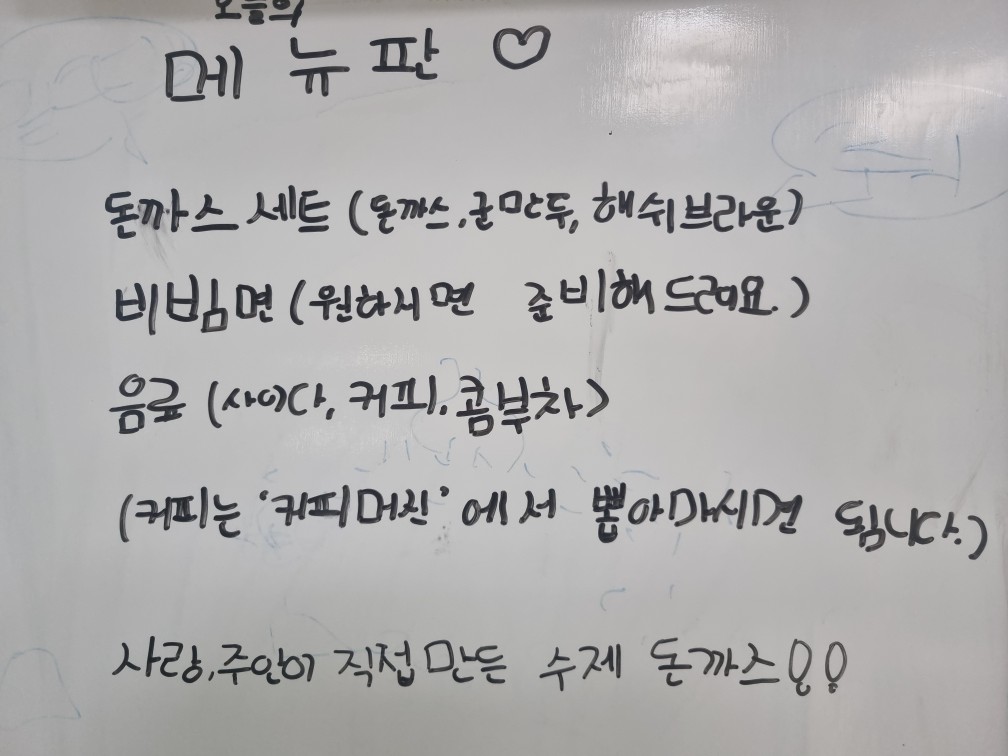 오늘의
메뉴판 ♡
돈까스 세트 (돈까스, 군만두, 해쉬브라운)
비빔면 (원하시면 준비해드려요.)
음료 (사이다, 커피, 콤부차)
(커피는 '커피머신' 에서 뽑아마시면 됩니다.)
사랑, 주인이 직접 만든 수제 돈까스!!